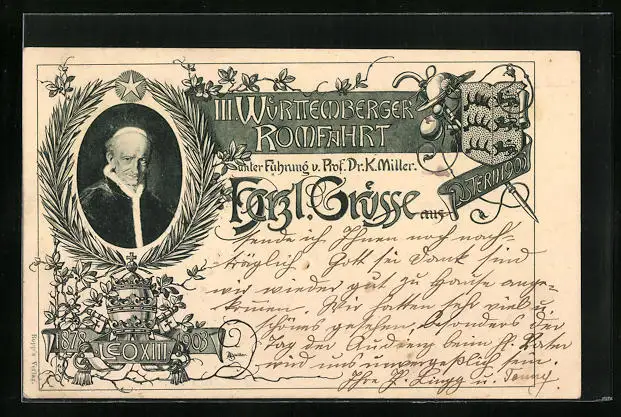 III WÜRTTEMBERGER
ROMFAHRT
unter Führung v. Prof. Dr. K. Miller.
OSTERN 1903
Herzl. Grüsse aus
sende ich Ihnen noch nach-
träglich Gott sei Dank sind
wir wieder gut zu Hause ange-
kommen. Wir hatten sehr vieles
schönes gesehen, besonders der
Tag der Audienz beim hl. Vater
wird uns unvergeßlich sein.
Ihre P. Lingg u.
1878 LEO XIII 1903
Rupp's Verlag.